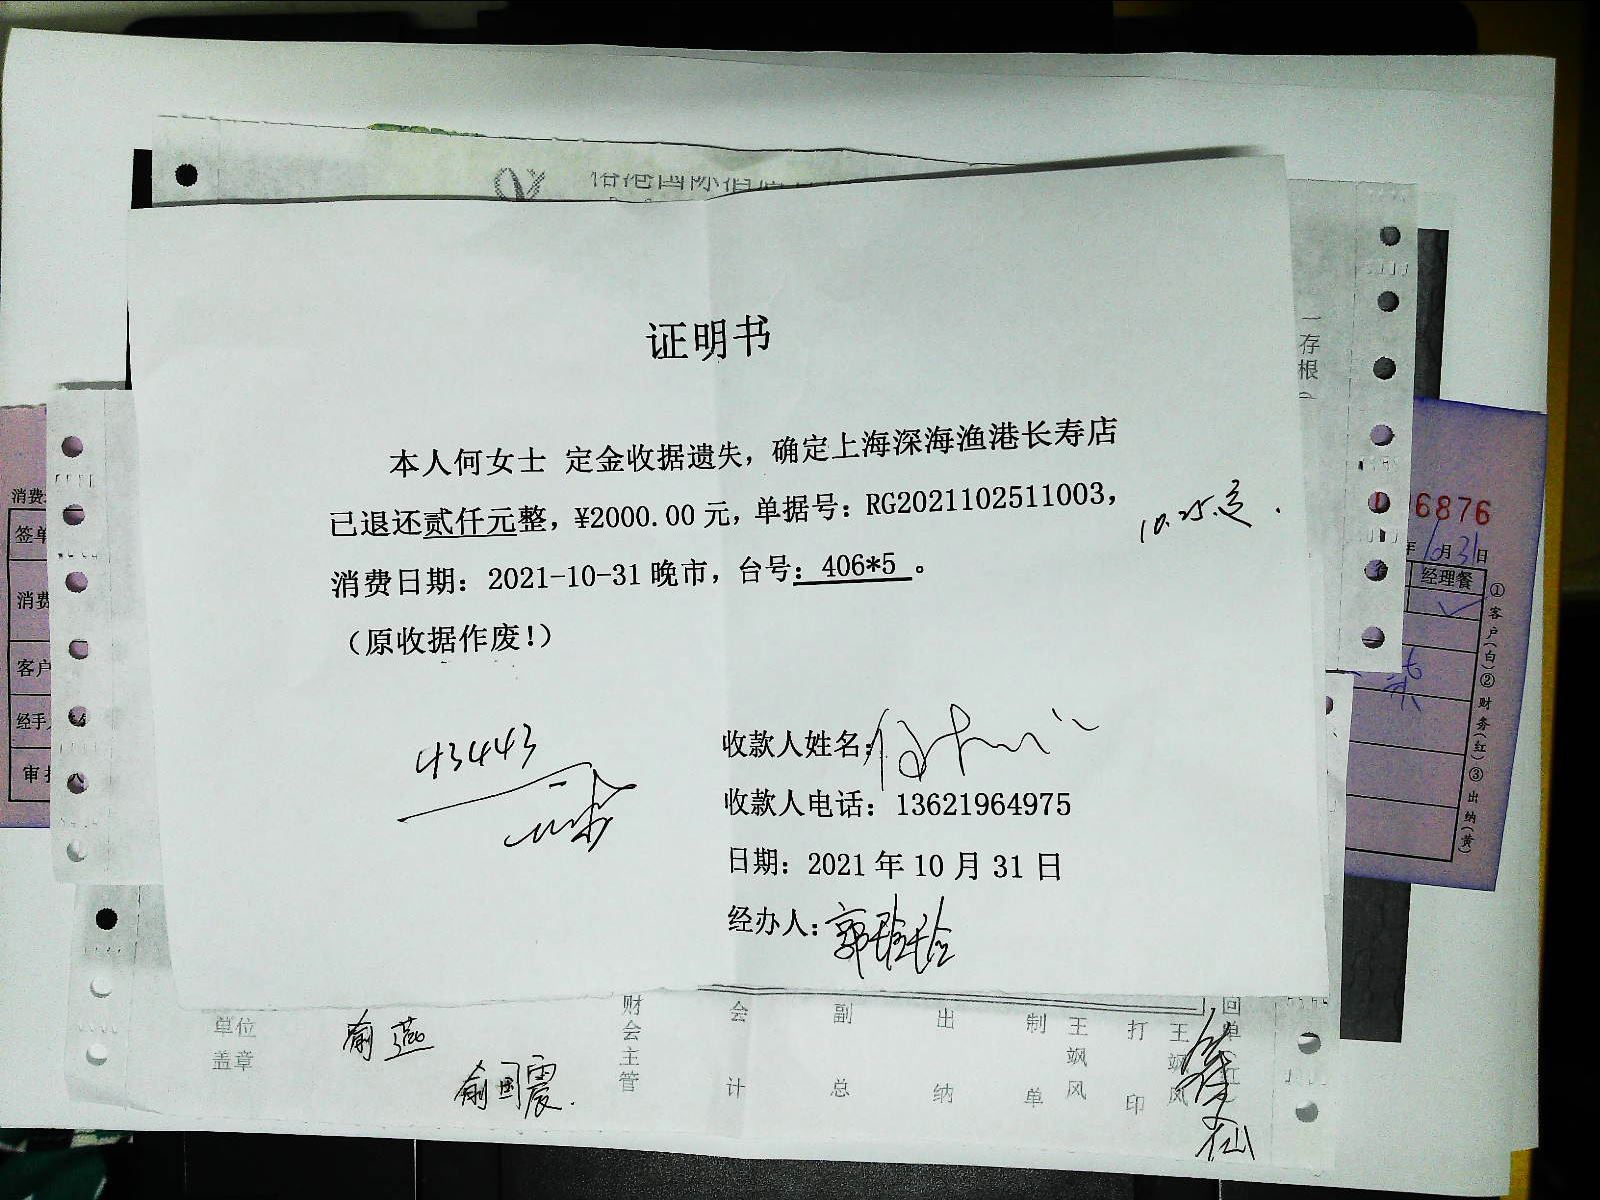 证明书
本人何女士 定金收据遗失，确定上海深海渔港长寿店
已退还贰仟元整，¥2000.00 元，单据号：RG2021102511003，
10.25.
消费日期：2021-10-31 晚市，台号：406*5 。
（原收据作废！）
43443
收款人姓名：
收款人电话：13621964975
日期：2021 年 10 月 31 日
经办人：郭玲玲
国际酒店
存根
消费
签单
消费
客户
经手
审
6876
10月31日
经理餐
①客户(白)②财务(红)③出纳(黄)
单位盖章
俞燕
俞国震.
财会主管
会计
副总
出纳
制单
王飒风
打印
王飒风
回单(红)